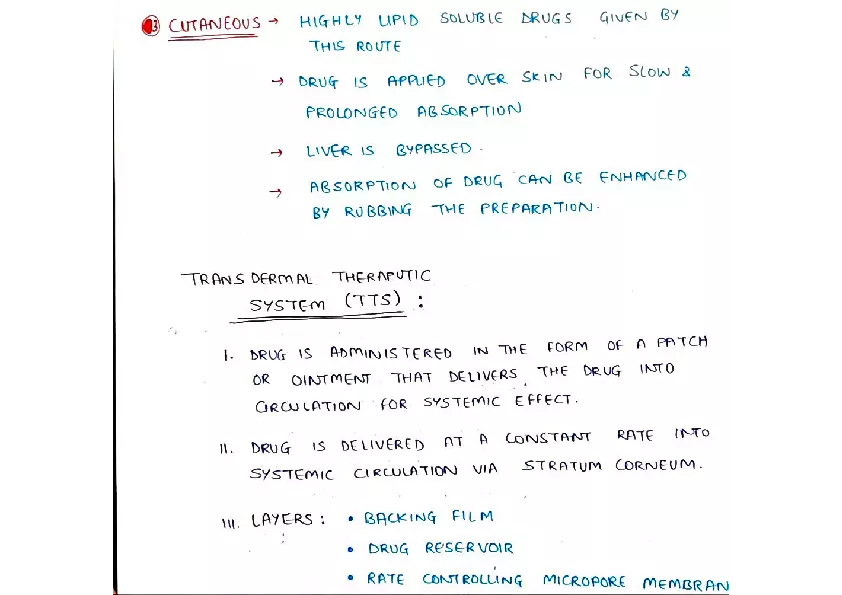 3 CUTANEOUS → HIGHLY LIPID SOLUBLE DRUGS GIVEN BY
THIS ROUTE
→ DRUG IS APPLIED OVER SKIN FOR SLOW &
PROLONGED ABSORPTION
→ LIVER IS BYPASSED.
→ ABSORPTION OF DRUG CAN BE ENHANCED
BY RUBBING THE PREPARATION.
TRANSDERMAL THERAPUTIC
SYSTEM (TTS) :
I. DRUG IS ADMINISTERED IN THE FORM OF A PATCH
OR OINTMENT THAT DELIVERS THE DRUG INTO
CIRCULATION FOR SYSTEMIC EFFECT.
II. DRUG IS DELIVERED AT A CONSTANT RATE INTO
SYSTEMIC CIRCULATION VIA STRATUM CORNEUM.
III. LAYERS : • BACKING FILM
• DRUG RESERVOIR
• RATE CONTROLLING MICROPORE MEMBRAN